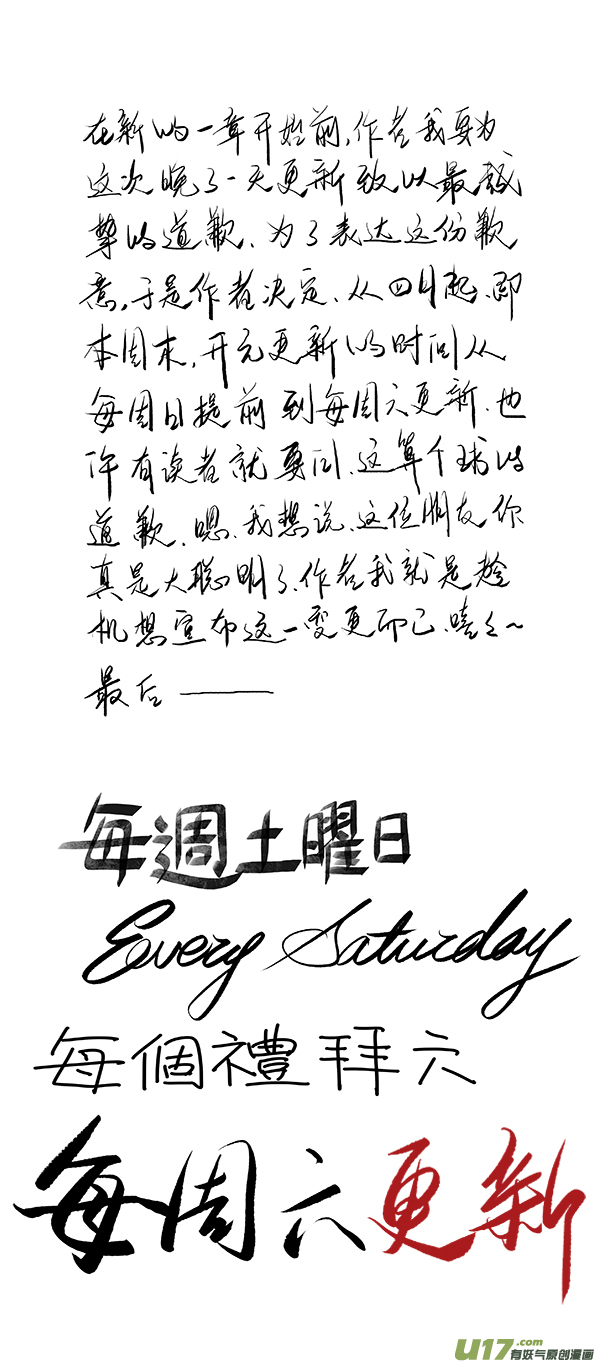 在新的一章开始前,作者我要为
这次晚了一天更新致以最诚
挚的道歉、为了表达这份歉
意,于是作者决定、从四月起、即
本周末,开元更新的时间从
每周日提前到每周六更新.也
许有读者就要问、这算个球的
道歉、嗯、我想说、这位朋友你
真是大聪明了、作者我就是趁
机想宣布这一变更而已、嘻々~
最后——
每週土曜日
Every Saturday
每個禮拜六
每周六更新
U17.com
有妖气原创漫画